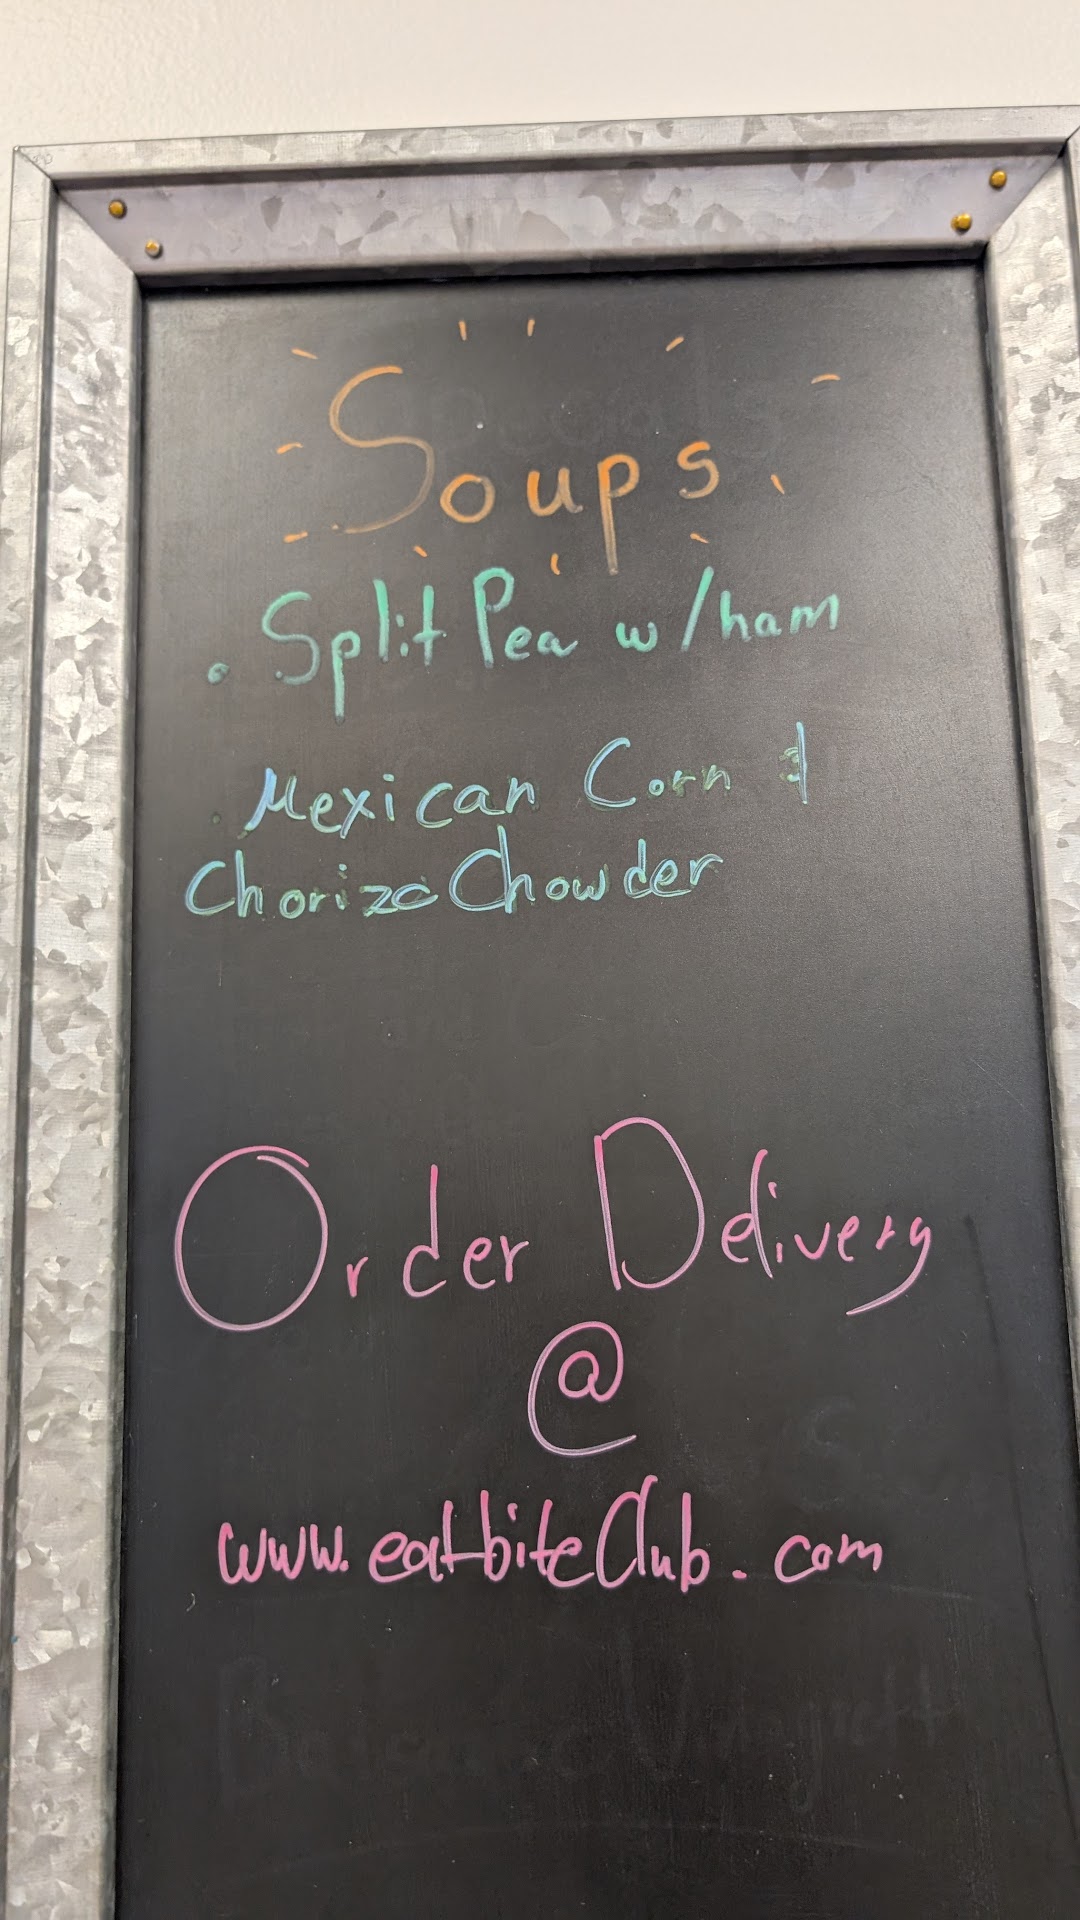 Soups
• Split Pea w/ham
• Mexican Corn &
Chorizo Chowder
Order Delivery
@
www.eatbiteClub.com